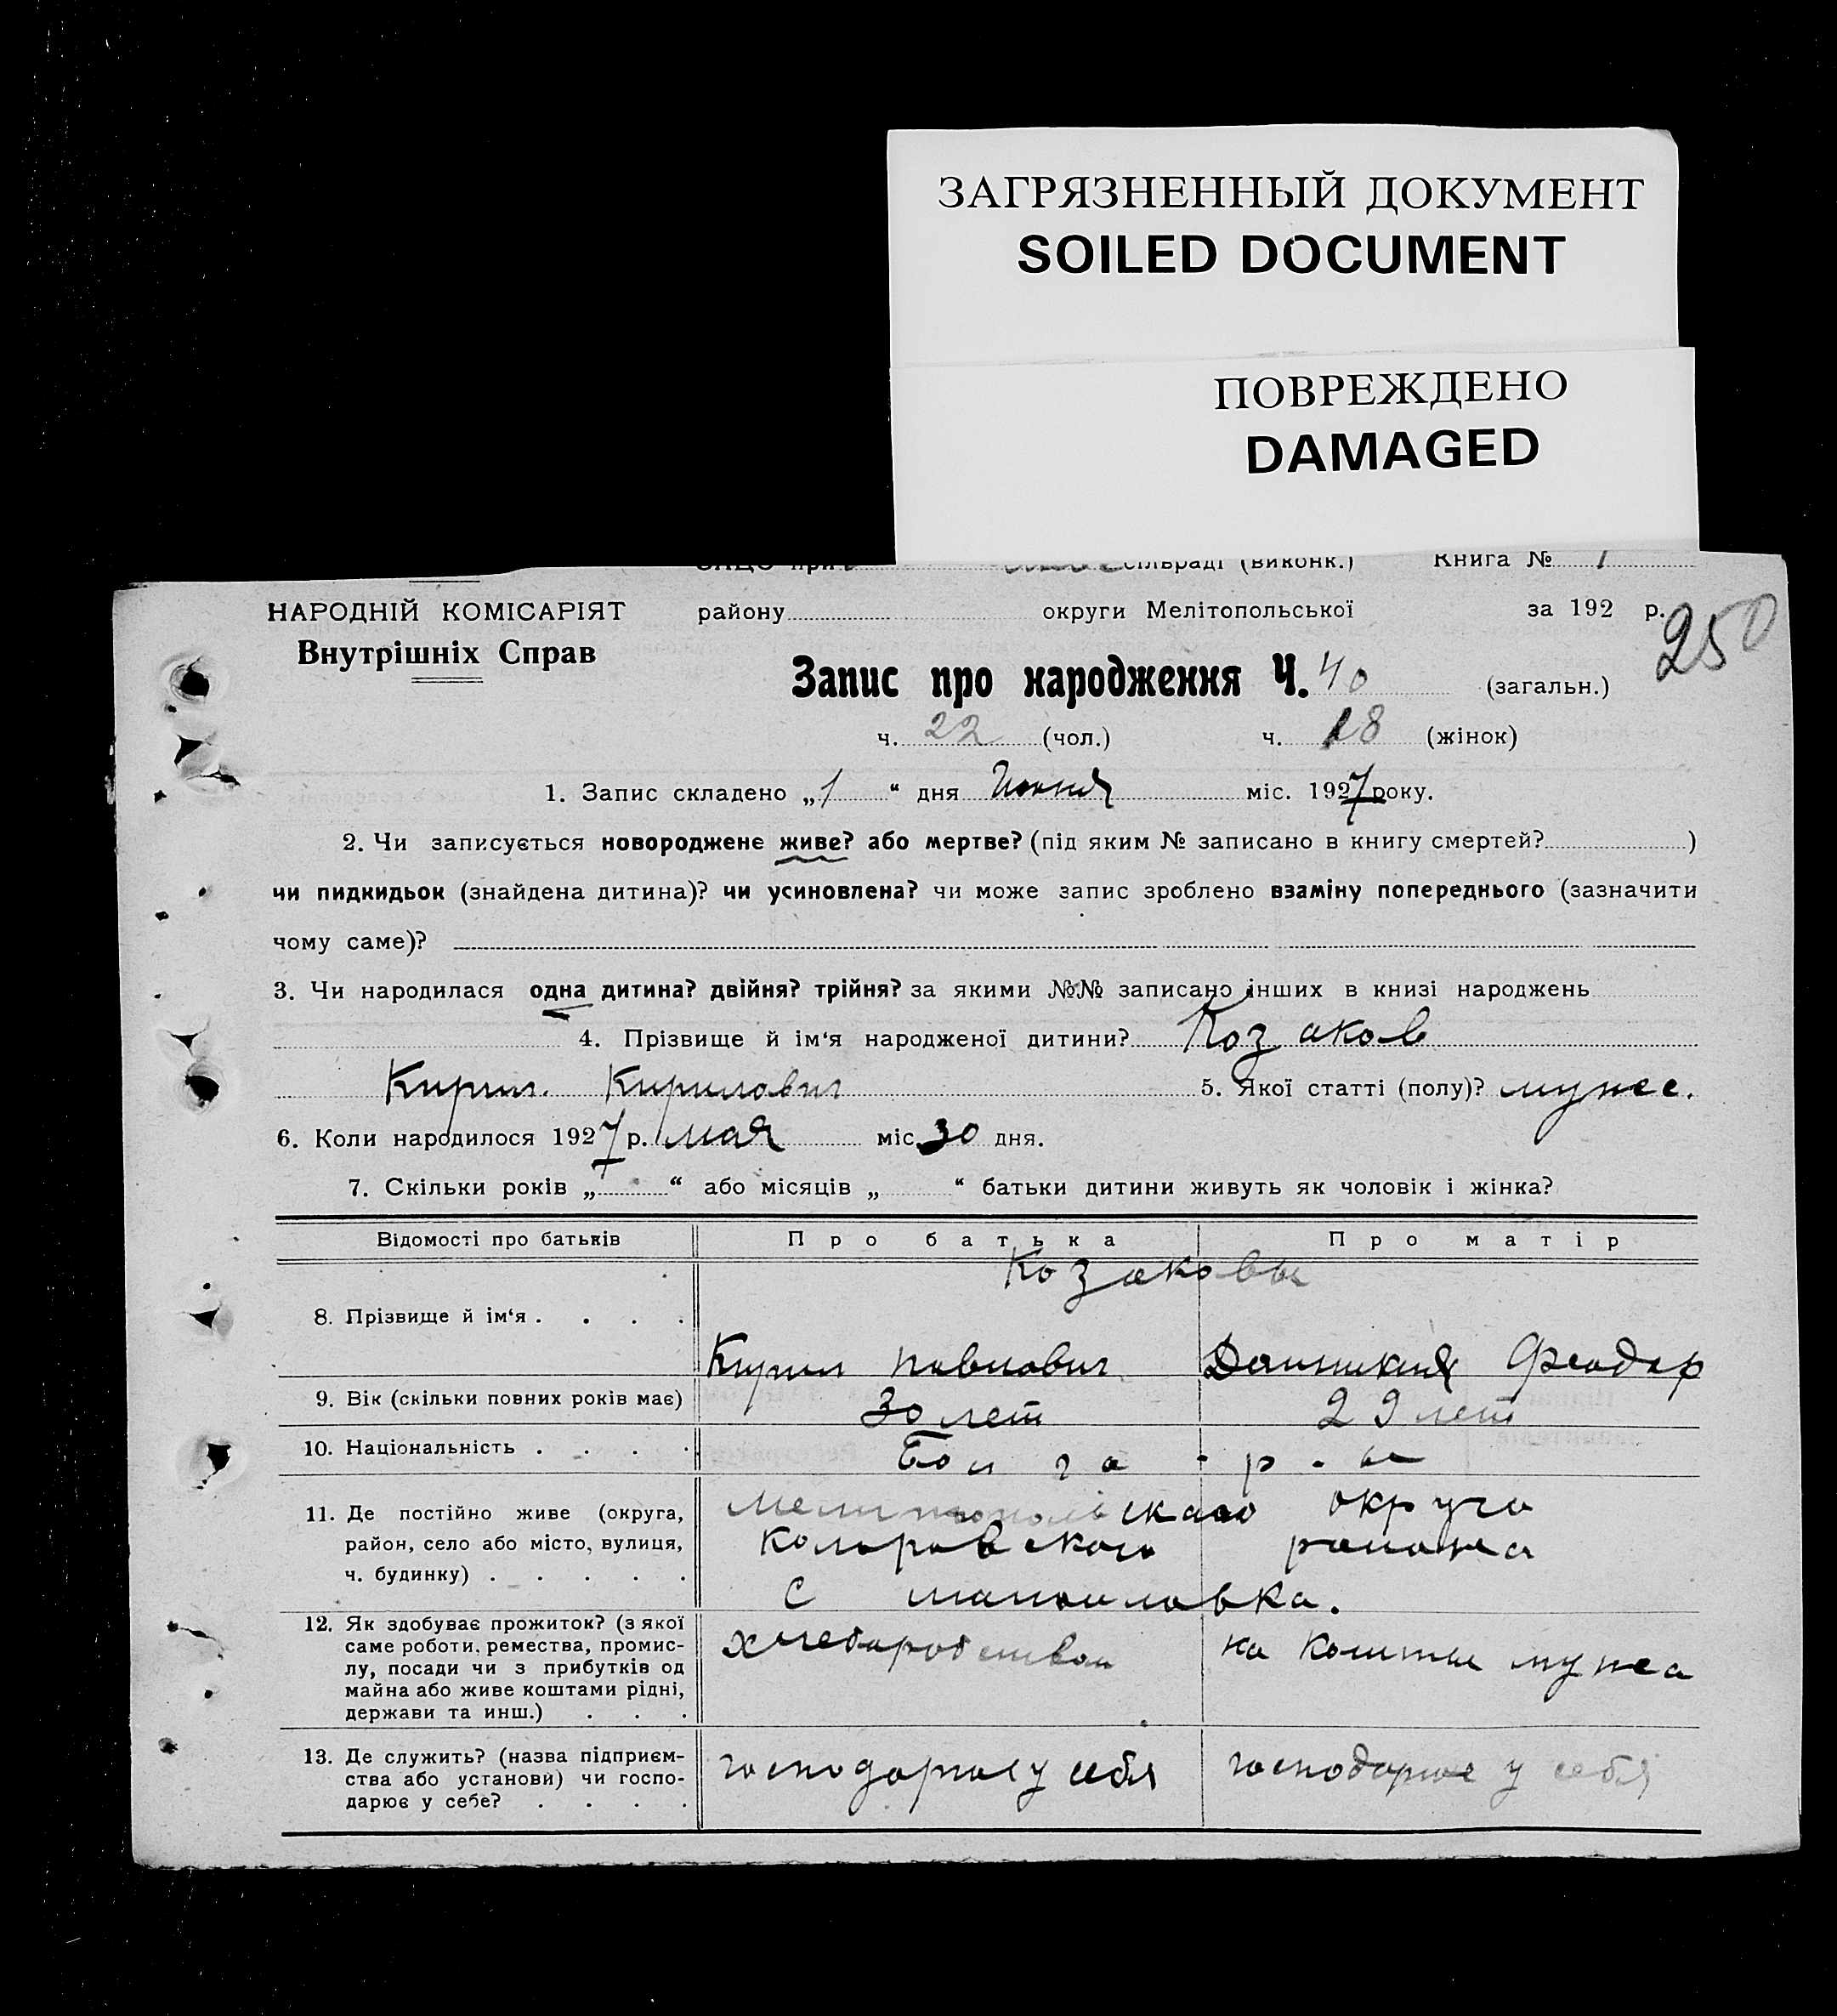 ЗАГРЯЗНЕННЫЙ ДОКУМЕНТ
SOILED DOCUMENT
ПОВРЕЖДЕНО
DAMAGED
сільраді (виконк.) Книга № 1
НАРОДНІЙ КОМІСАРІЯТ району округи Мелітопольської за 192 р.
250
Внутрішніх Справ
Запис про народження Ч. 40 (загальн.)
ч. 22 (чол.) ч. 18 (жінок)
1. Запис складено „1“ дня Июня міс. 1927 року.
2. Чи записується новороджене живе? або мертве? (під яким № записано в книгу смертей? )
чи пидкидьок (знайдена дитина)? чи усиновлена? чи може запис зроблено взаміну попереднього (зазначити
чому саме)?
3. Чи народилася одна дитина? двійня? трійня? за якими №№ записано інших в книзі народжень
4. Прізвище й ім‘я народженої дитини? Козаков
Кирил. Кирилович 5. Якої статті (полу)? мужс.
6. Коли народилося 1927 р. мая міс. 30 дня.
7. Скільки років „ “ або місяців „ “ батьки дитини живуть як чоловік і жінка?
Відомості про батьків Про батька Про матір
Козаковы
8. Прізвище й ім‘я . . . .
Кирил Павлович Феодор
9. Вік (скільки повних років має) 30 лет 29 лет
10. Національність . . . . Болга-р-ы
11. Де постійно живе (округа, Мелитопольскаго округа
район, село або місто, вулиця, коларовского района
ч. будинку) . . . . . с мануиловка.
12. Як здобуває прожиток? (з якої
саме роботи, ремества, промис- хлебаробством на кошты мужа
лу, посади чи з прибутків од
майна або живе коштами рідні,
держави та инш.) . . .
13. Де служить? (назва підприєм-
ства або установи) чи госпо- господарює у себя господарює у себя
дарює у себе? . . . .